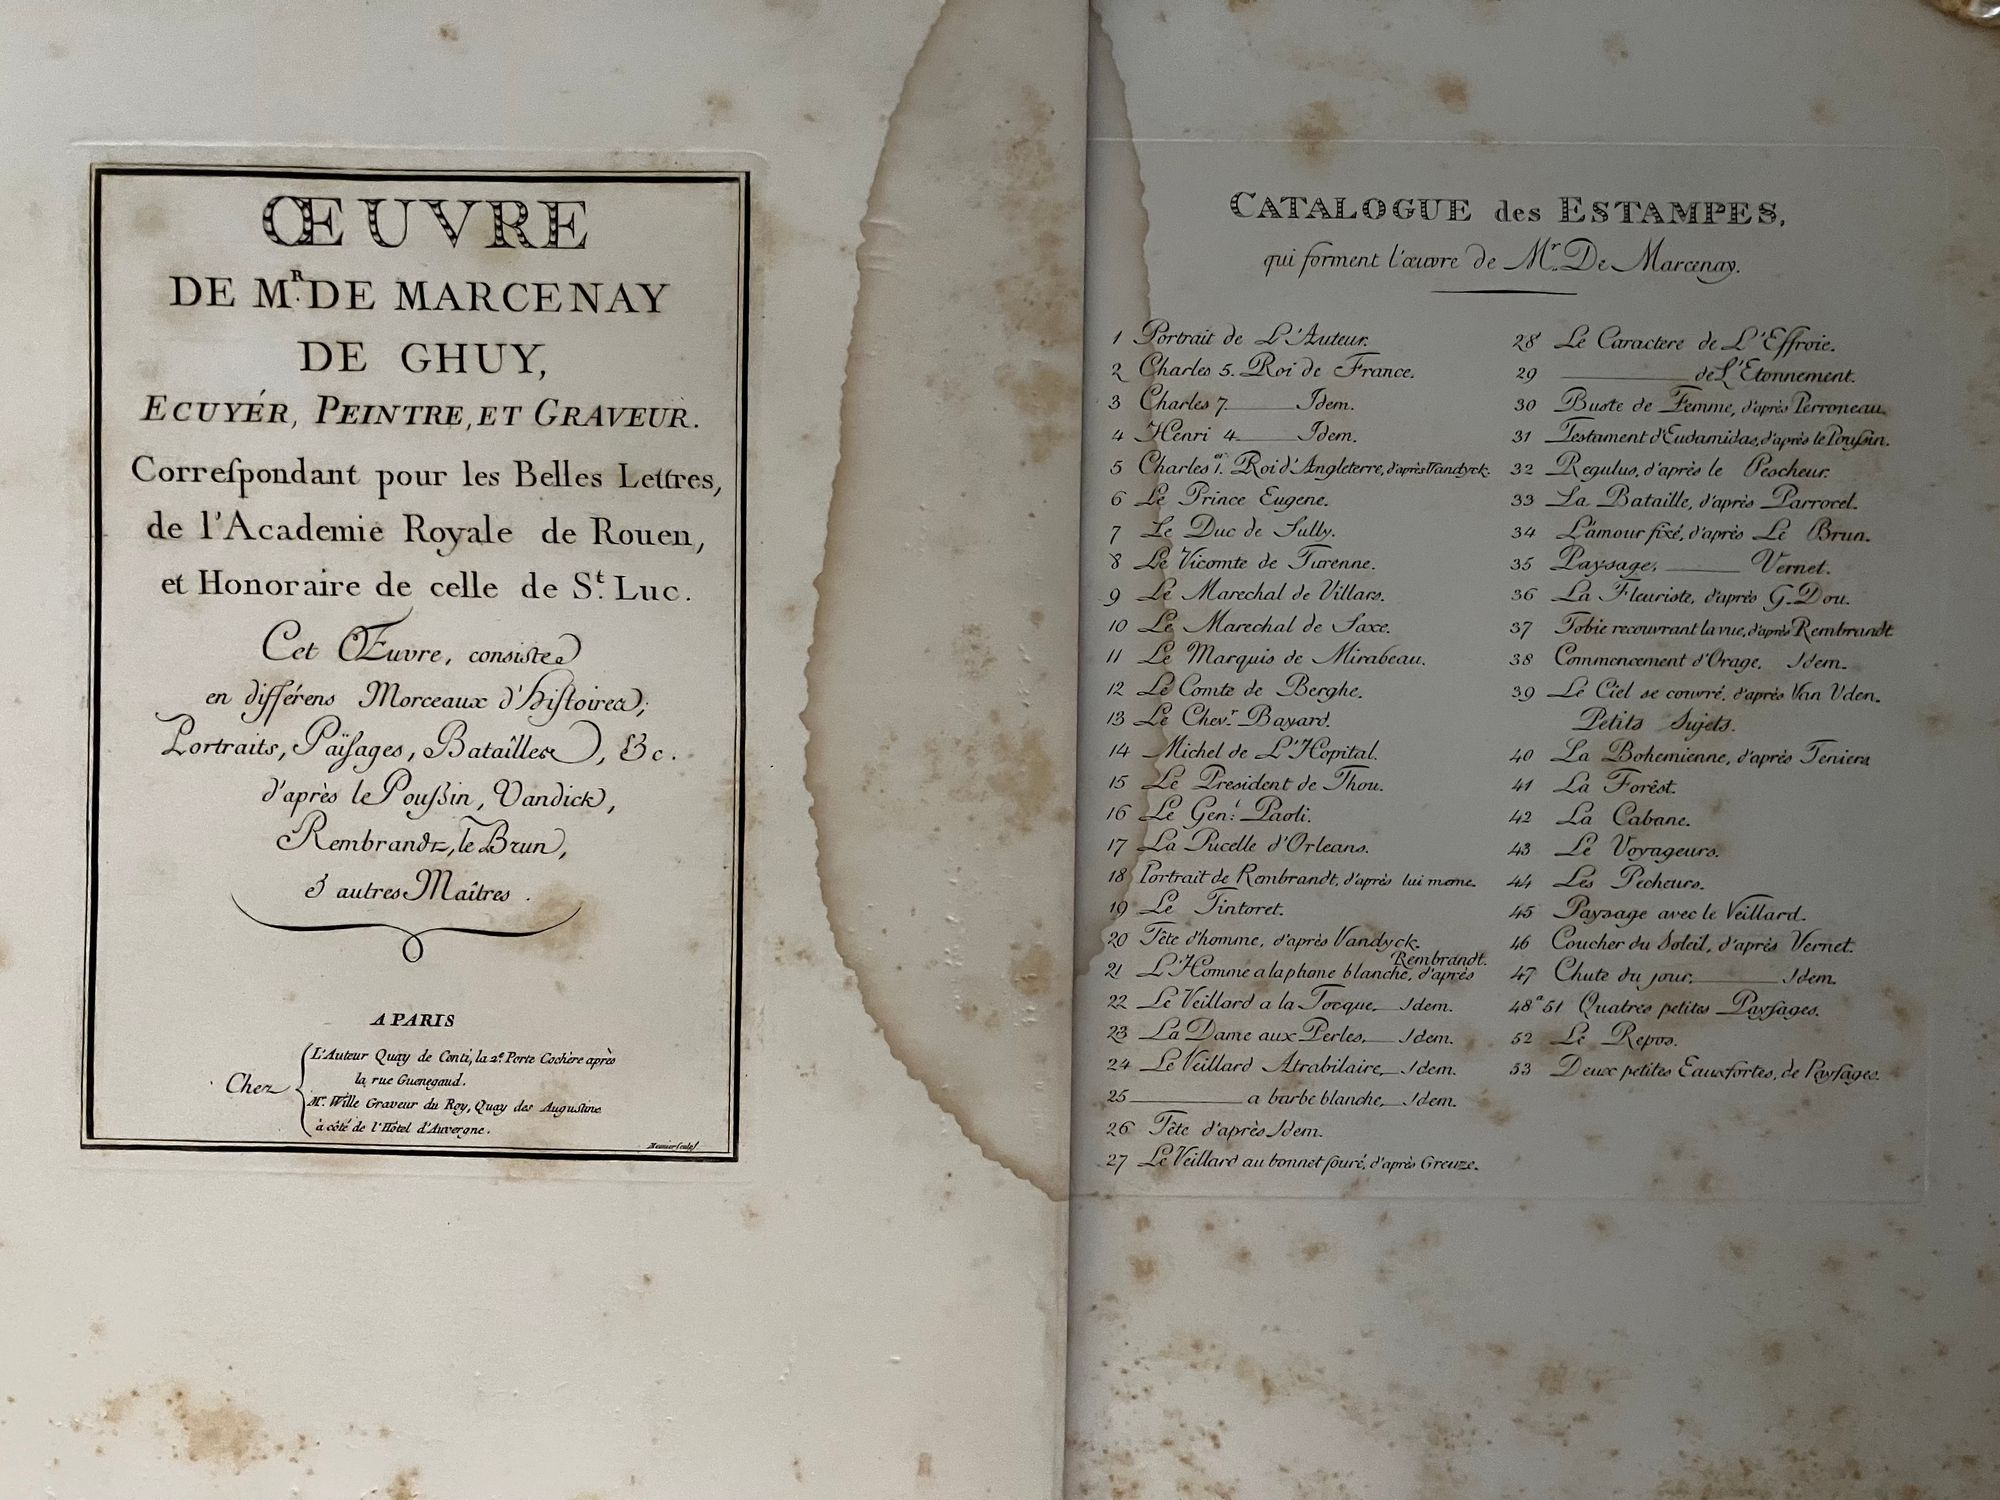 ŒUVRE
DE MR. DE MARCENAY
DE GHUY,
ECUYÉR, PEINTRE, ET GRAVEUR.
Correſpondant pour les Belles Lettres,
de l'Academie Royale de Rouen,
et Honoraire de celle de St. Luc.
Cet Œuvre, consiste
en différens Morceaux d'hiſtoires;
Portraits, Païſages, Batailles, &c.
d'après le Pouſsin, Vandick,
Rembrandt, le Brun,
& autres Maîtres.
A PARIS
Chez
L'Auteur Quay de Conti, la 2e. Porte Cochère après
la rue Guenegaud.
Mr. Wille Graveur du Roy, Quay des Augustins
à côté de l'Hôtel d'Auvergne.
CATALOGUE des ESTAMPES,
qui forment l'œuvre de Mr. De Marcenay.
1 Portrait de L'Auteur.
2 Charles 5. Roi de France.
3 Charles 7. Idem.
4 Henri 4. Idem.
5 Charles 1er. Roi d'Angleterre, d'après Vandyck.
6 Le Prince Eugene.
7 Le Duc de Sully.
8 Le Vicomte de Turenne.
9 Le Marechal de Villars.
10 Le Marechal de Saxe.
11 Le Marquis de Mirabeau.
12 Le Comte de Berghe.
13 Le Chevr. Bayard.
14 Michel de L'Hopital.
15 Le President de Thou.
16 Le Genl. Paoli.
17 La Pucelle d'Orleans.
18 Portrait de Rembrandt, d'après lui meme.
19 Le Tintoret.
20 Tête d'homme, d'après Vandyck.
21 L'Homme a la phone blanche, d'après Rembrandt.
22 Le Veillard a la Tocque, Idem.
23 La Dame aux Perles, Idem.
24 Le Veillard Atrabilaire, Idem.
25 a barbe blanche, Idem.
26 Tête d'après Idem.
27 Le Veillard au bonnet fouré, d'après Greuze.
28 Le Caractere de L'Effroie.
29 de L'Etonnement.
30 Buste de Femme, d'après Perroneau.
31 Testament d'Eudamidas, d'après le Pouſsin.
32 Regulus, d'après le Pescheur.
33 La Bataille, d'après Parrocel.
34 L'amour fixé, d'après Le Brun.
35 Paysage, Vernet.
36 La Fleuriste, d'après G. Dou.
37 Tobie recouvrant la vue, d'après Rembrandt
38 Commencement d'Orage, Idem.
39 Le Ciel se couvré, d'après Van Uden.
Petits Sujets.
40 La Bohemienne, d'après Teniers
41 La Forêst.
42 La Cabane.
43 Le Voyageurs.
44 Les Pecheurs.
45 Paysage avec le Veillard.
46 Coucher du Soleil, d'après Vernet.
47 Chute du jour, Idem.
48 a 51 Quatres petites Payſages.
52 Le Repos.
53 Deux petites Eauxfortes, de Payſages.